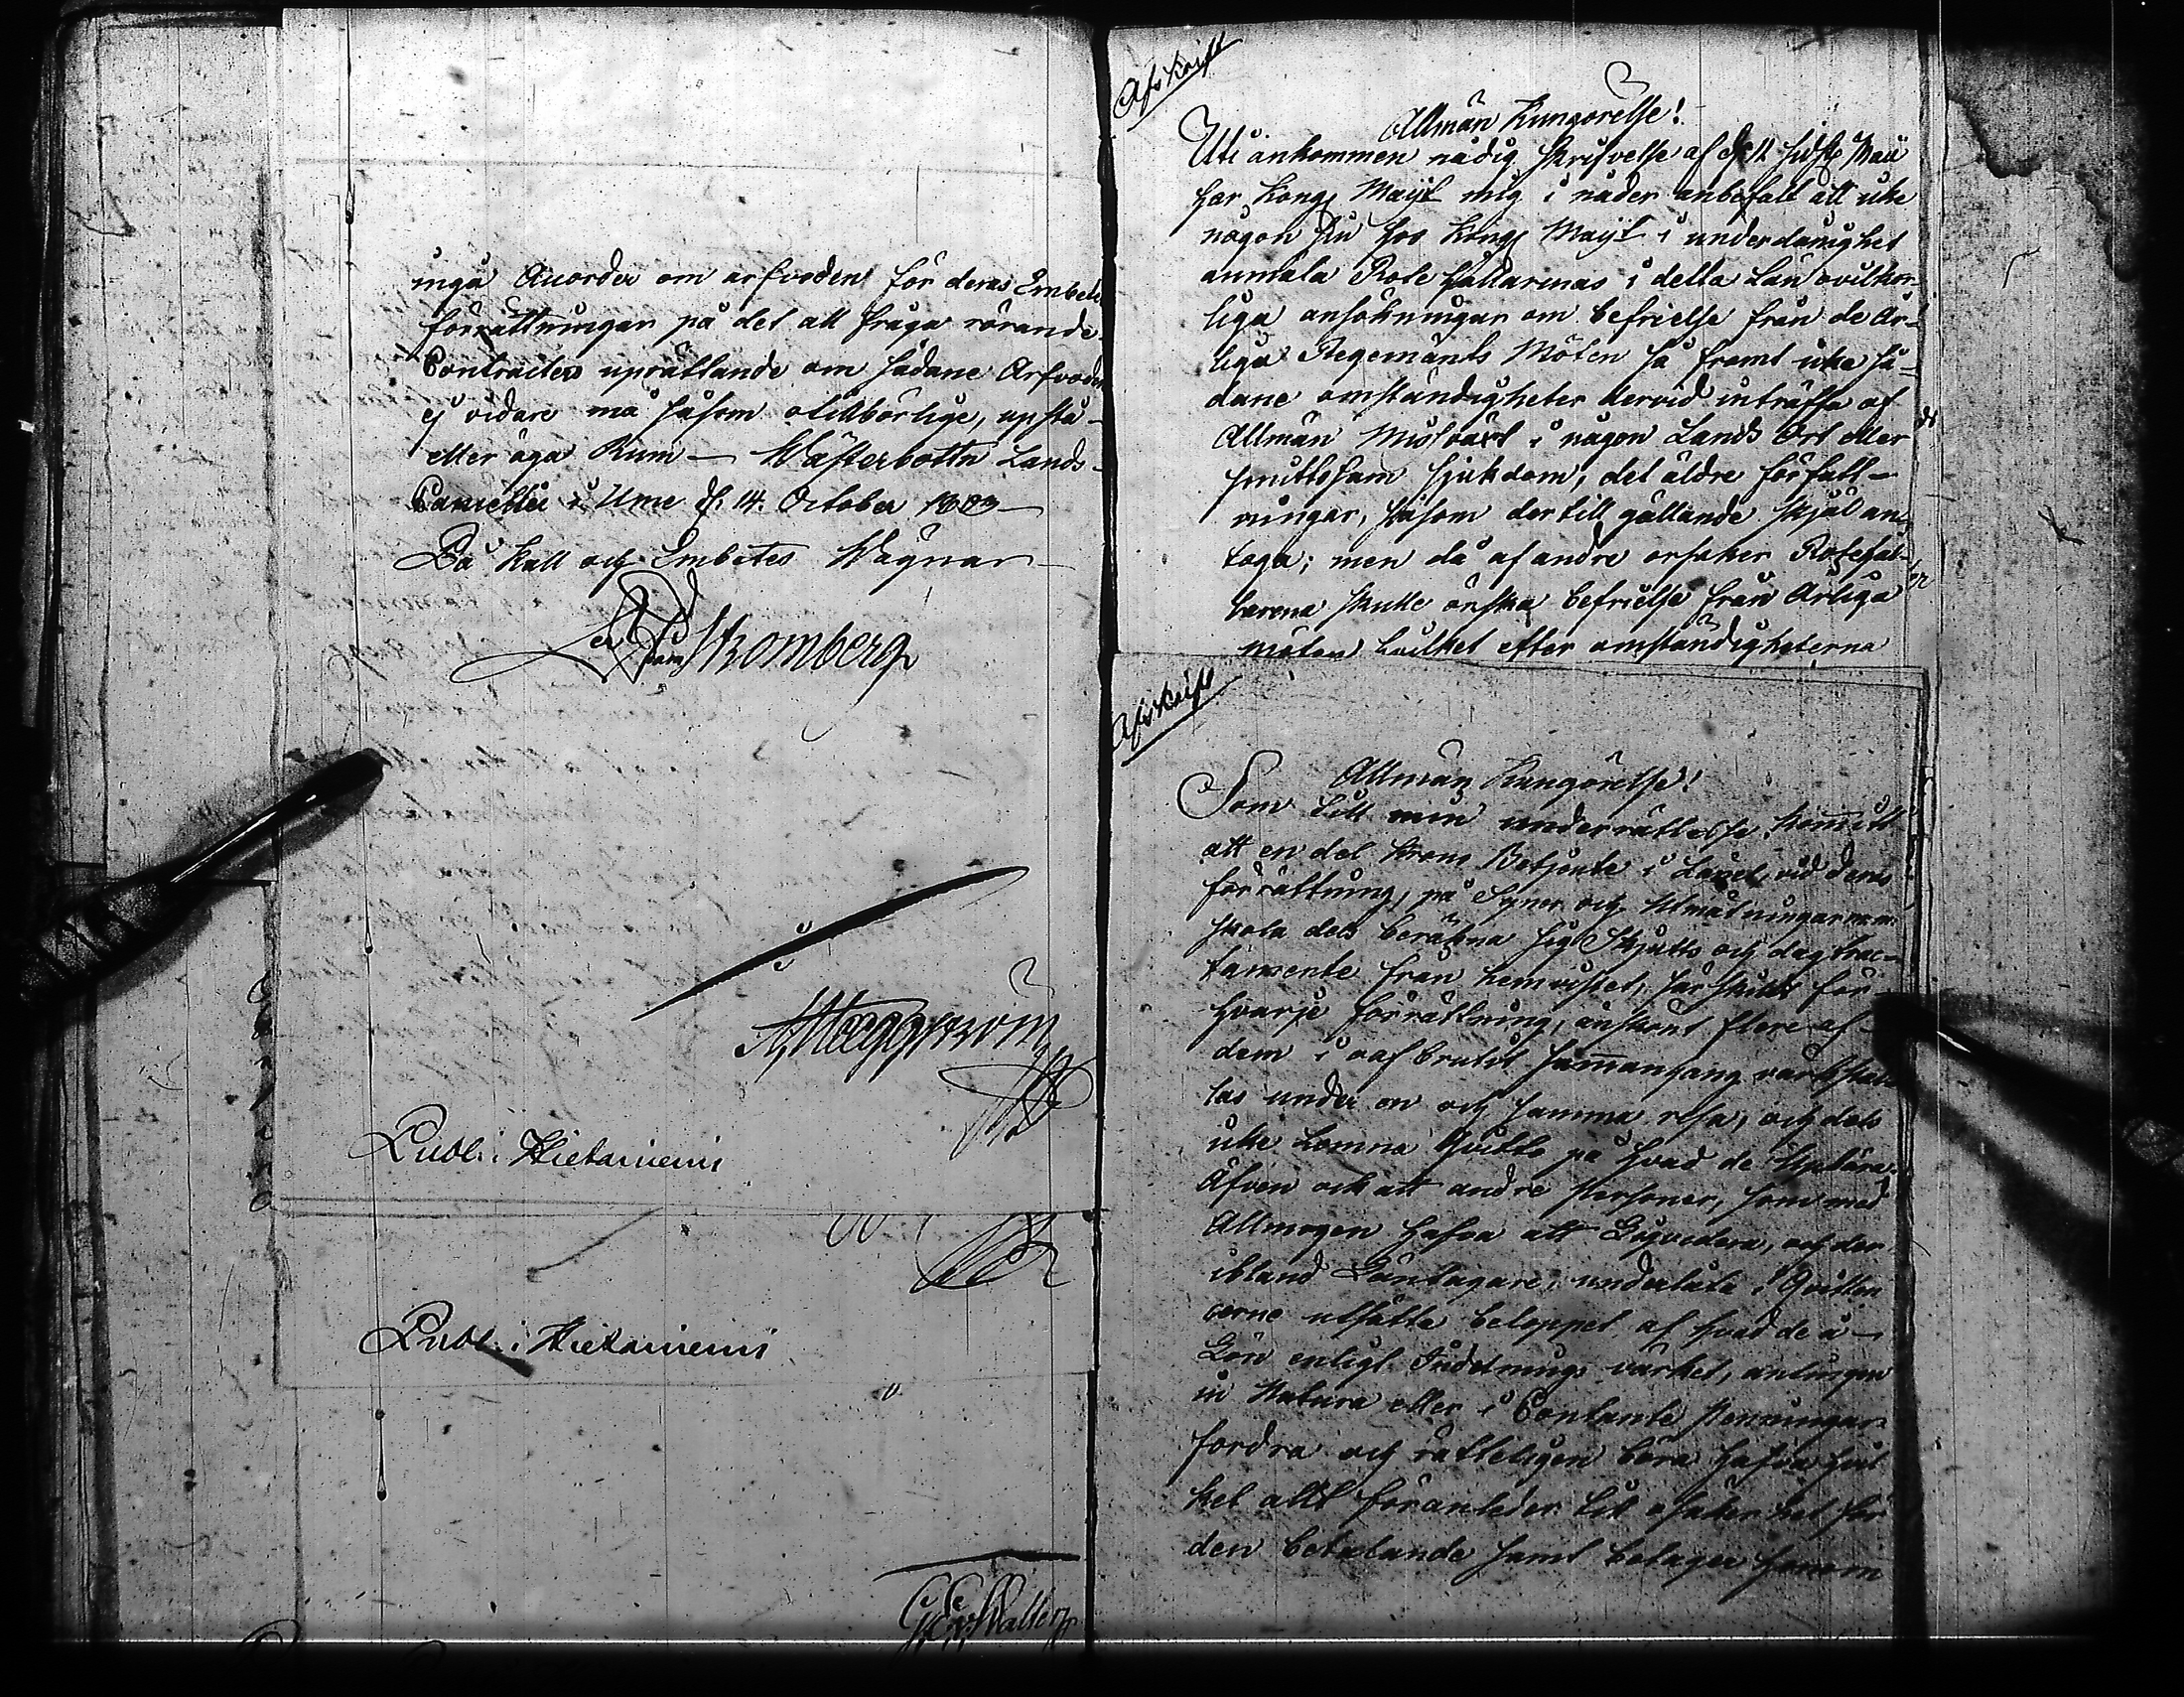 inga Accorder om arfvoden för deras Embets
förrättningar på det att fråga rörande
Contracters uprättande om sådane Arfvoden
ej vidare må såsom otillbörlige, upstå
eller äga Rum — Wästerbottn Lands-
Cancellie i Umeå d. 14. October
På kall och Embetes Wägnar
Stromberg
Häggström
Publ: i Hietaniemi
Publ: i Hietaniemi
Afskrift
Allmän Kungörelse!
Uti ankommen nådig skrifvelse af d. 12 sidstl Maii
har Kongl Maijt mig i nåder anbefalt att icke
någon sin hos Kongl Maijt i underdånighet
anmäla Rote hållarenas i detta Län ovilkor-
liga ansökningar om befrielse från de År-
liga Regements Möten så framt icke så-
dane omständigheter dervid inträffa af
Allmän Missväxt i någon Lands Ort eller
smittosam sjukdom, det äldre författ-
ningar, såsom dertill gällande skjäl an-
taga; men då af andre orsaker Rotehål-
larena skulle önska befrielse från Årliga
möten hvilket efter omständigheterna
Afskrift
Allmän Kungörelse!
Som till min underrättelse kommit
att en del Krono Betjente i Länet, vid deras
förrättning, på Syner och Utmätningar m.m.
skola dels beräkna sig Skjutts och dagtrac-
tamente från hemvistet, särskildt för
hvarje förrättning, änskönt flere af
dem i oafbrutit sammanhang värkstäl
las under en och samma resa, och dels
icke Lemna Qvitto på hvad de upbära.
Äfven ock att andre Personer, som med
Allmogen hafva att Liqvidera, och der
ibland Löntagare, underlåta i Qvitten
cerne utsätta beloppet af hvad de i
Lön enligt Indelnings värket, antingen
in Natura eller i Contante Penningar
fordra och rätteligen böra hafva hvil
ket allt föranleder till osäkerhet för
den betalande samt betager honom